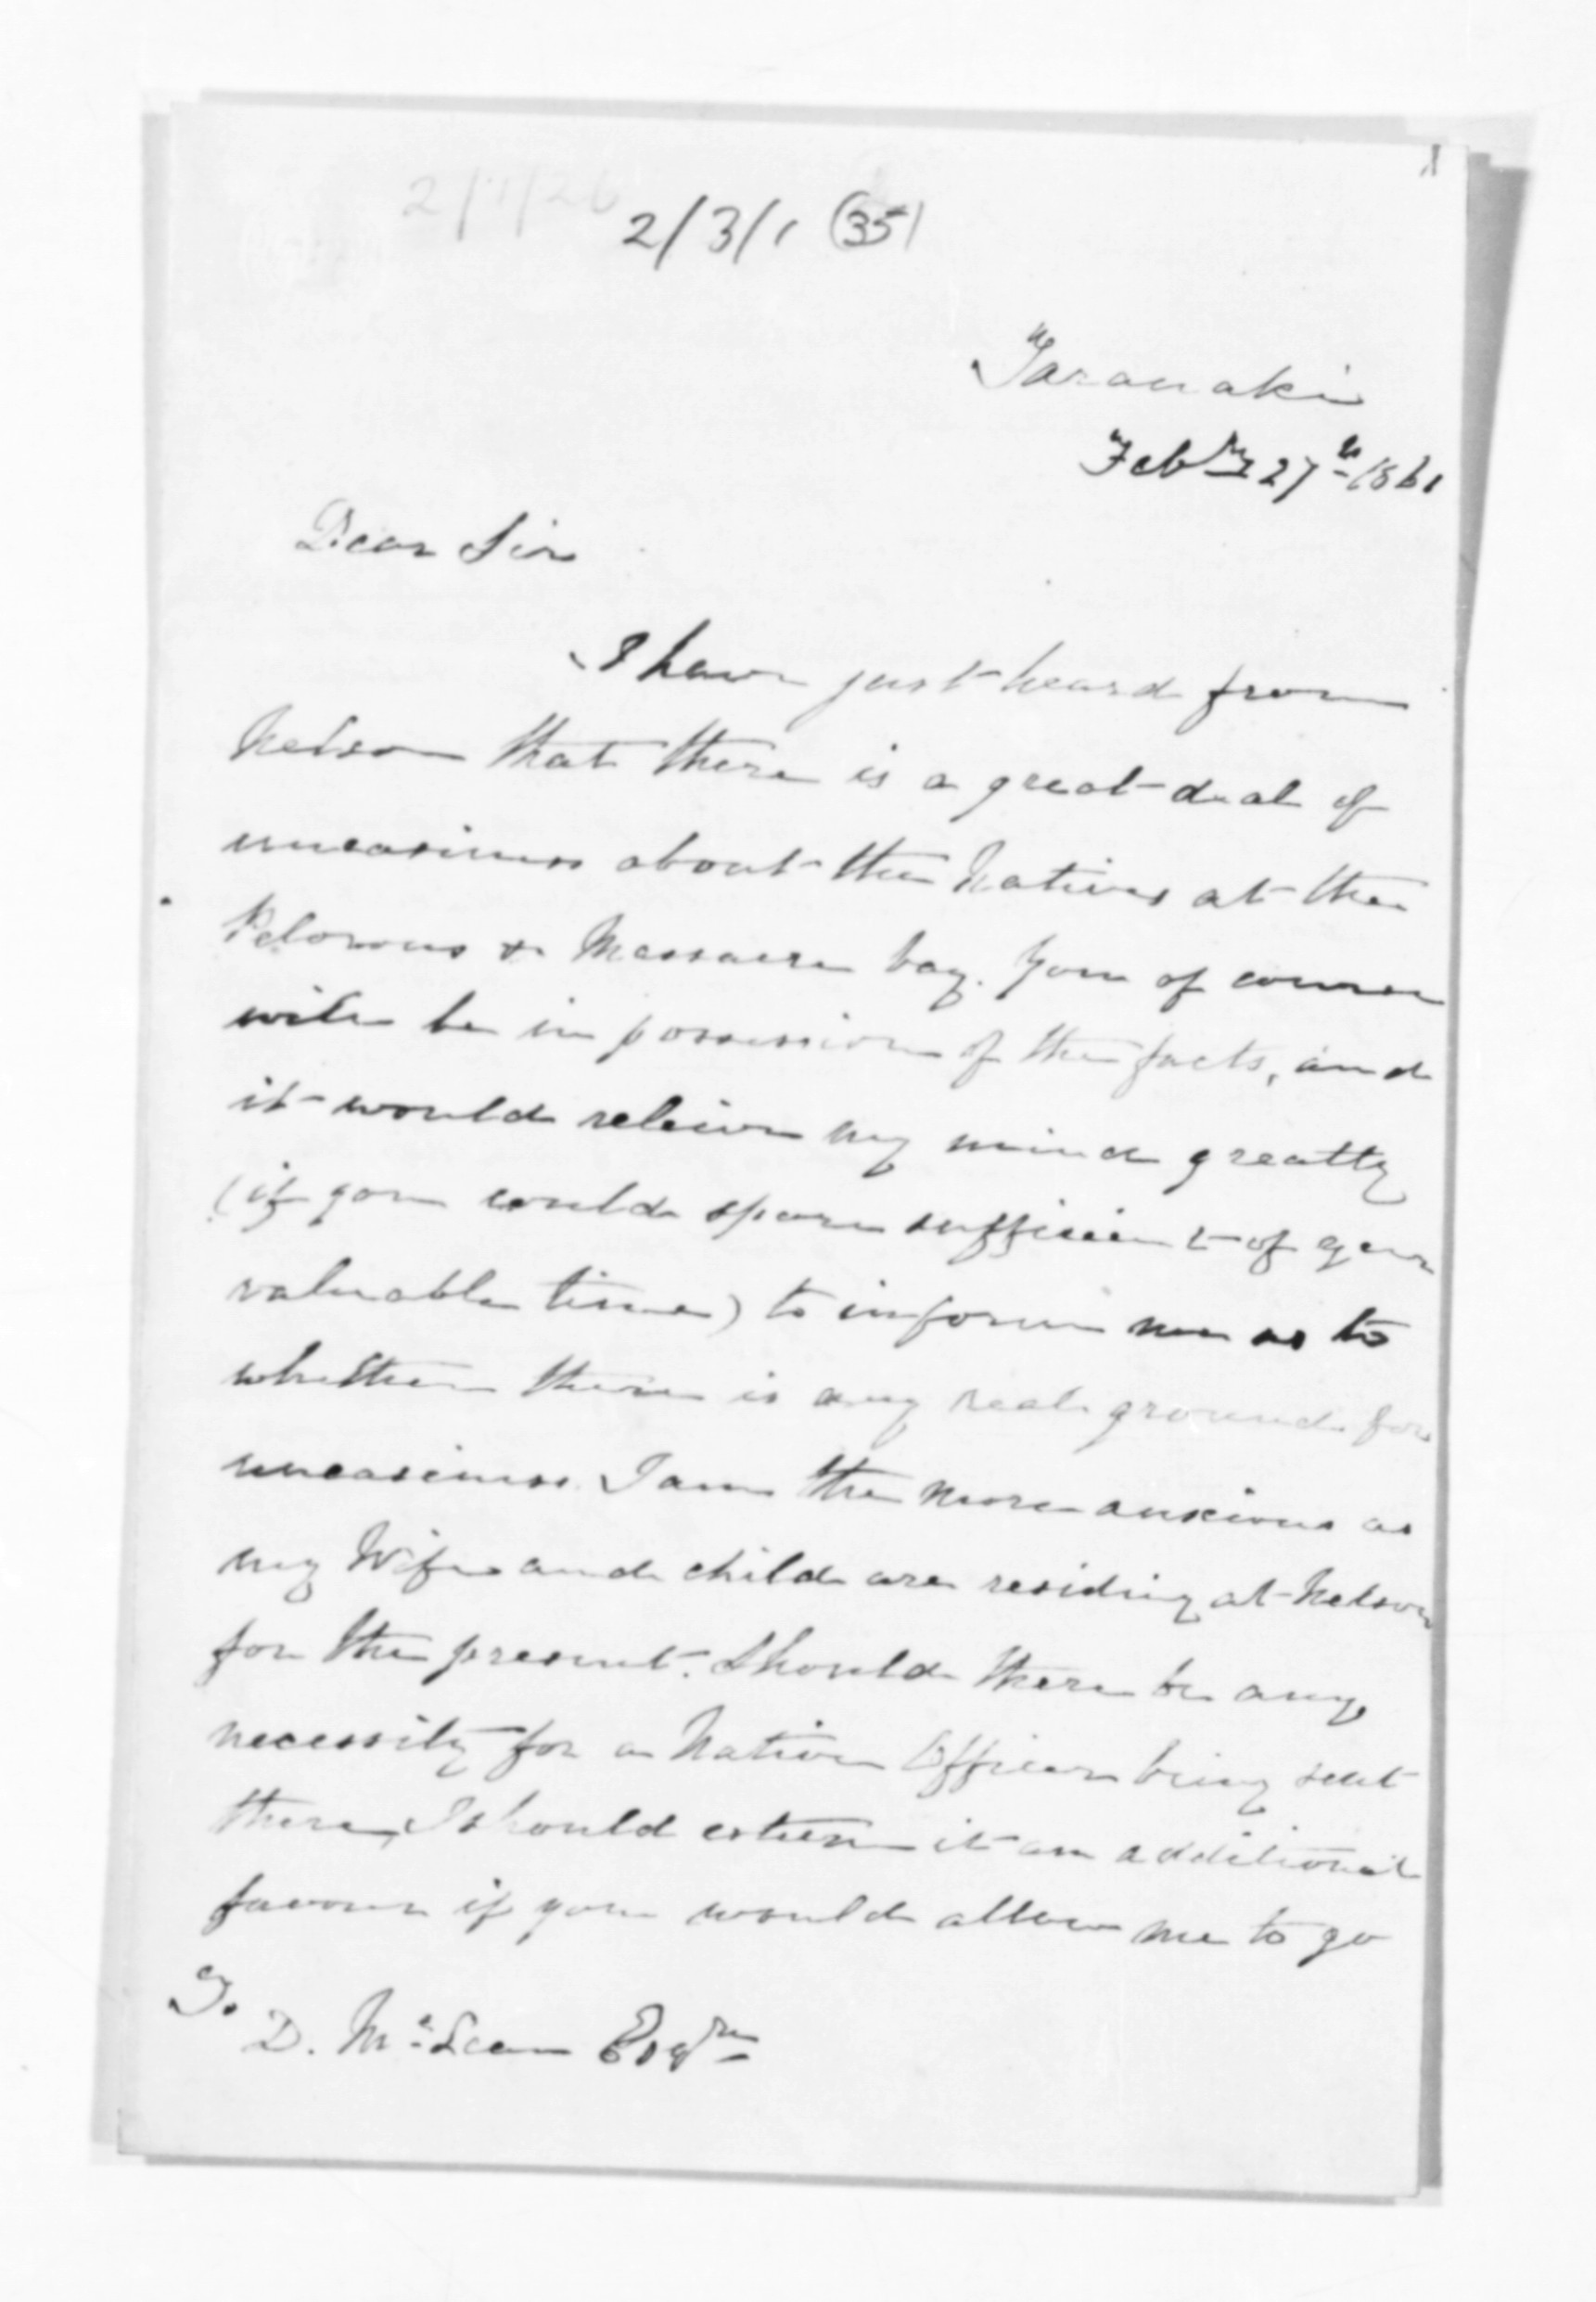 2/1/26
2/3/1 (35)
Taranaki
Feby 27th 1861
Dear Sir
I have just heard from
Nelson that there is a great deal of
uneasiness about the Natives at the
Pelorous & Massacre bay. You of course
will be in possession of the facts, and
it would releive my mind greatly
(if you could spare sufficient of your
valuable time) to inform me as to
whether there is any real ground for
uneasiness. I am the more anxious as
my Wife and child are residing at Nelson
for the present. Should there be any
necessity for a Native Officer being sent
there, I should esteem it an additional
favour if you would allow me to go
To
D. McLean Esqre